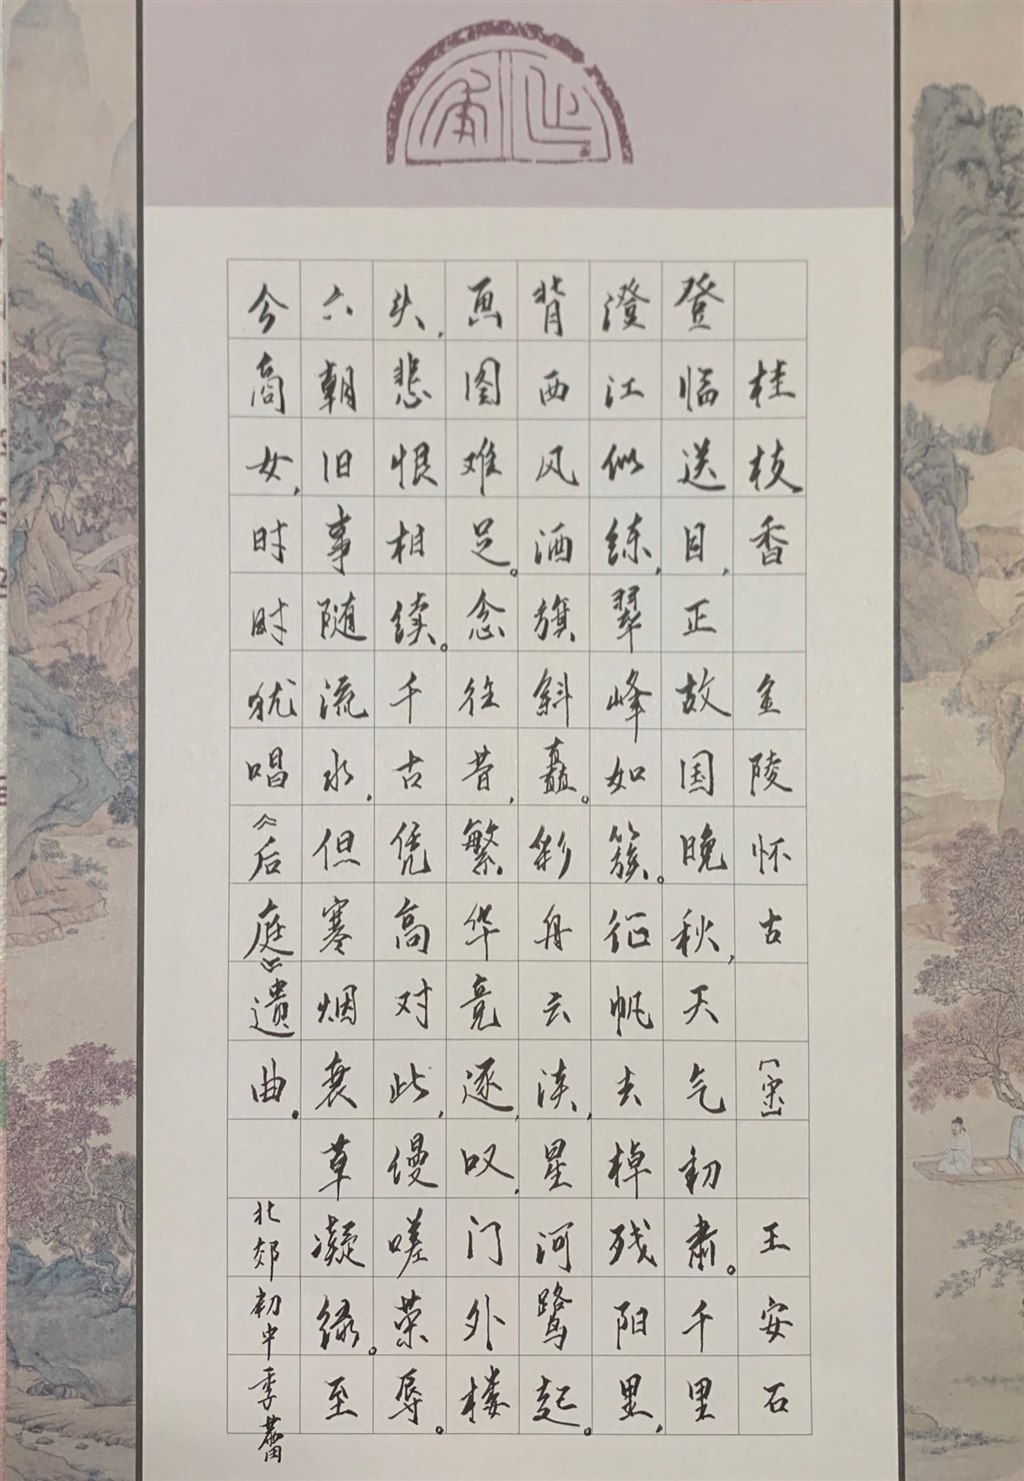 延年
桂枝香 金陵怀古 [宋] 王安石
登临送目,正故国晚秋,天气初肃。千里
澄江似练,翠峰如簇。征帆去棹残阳里,
背西风酒旗斜矗。彩舟云淡,星河鹭起。
画图难足。念往昔,繁华竞逐,叹门外楼
头,悲恨相续。千古凭高对此,谩嗟荣辱。
六朝旧事随流水,但寒烟衰草凝绿。至
今商女,时时犹唱《后庭》遗曲.
北郊初中季蕾